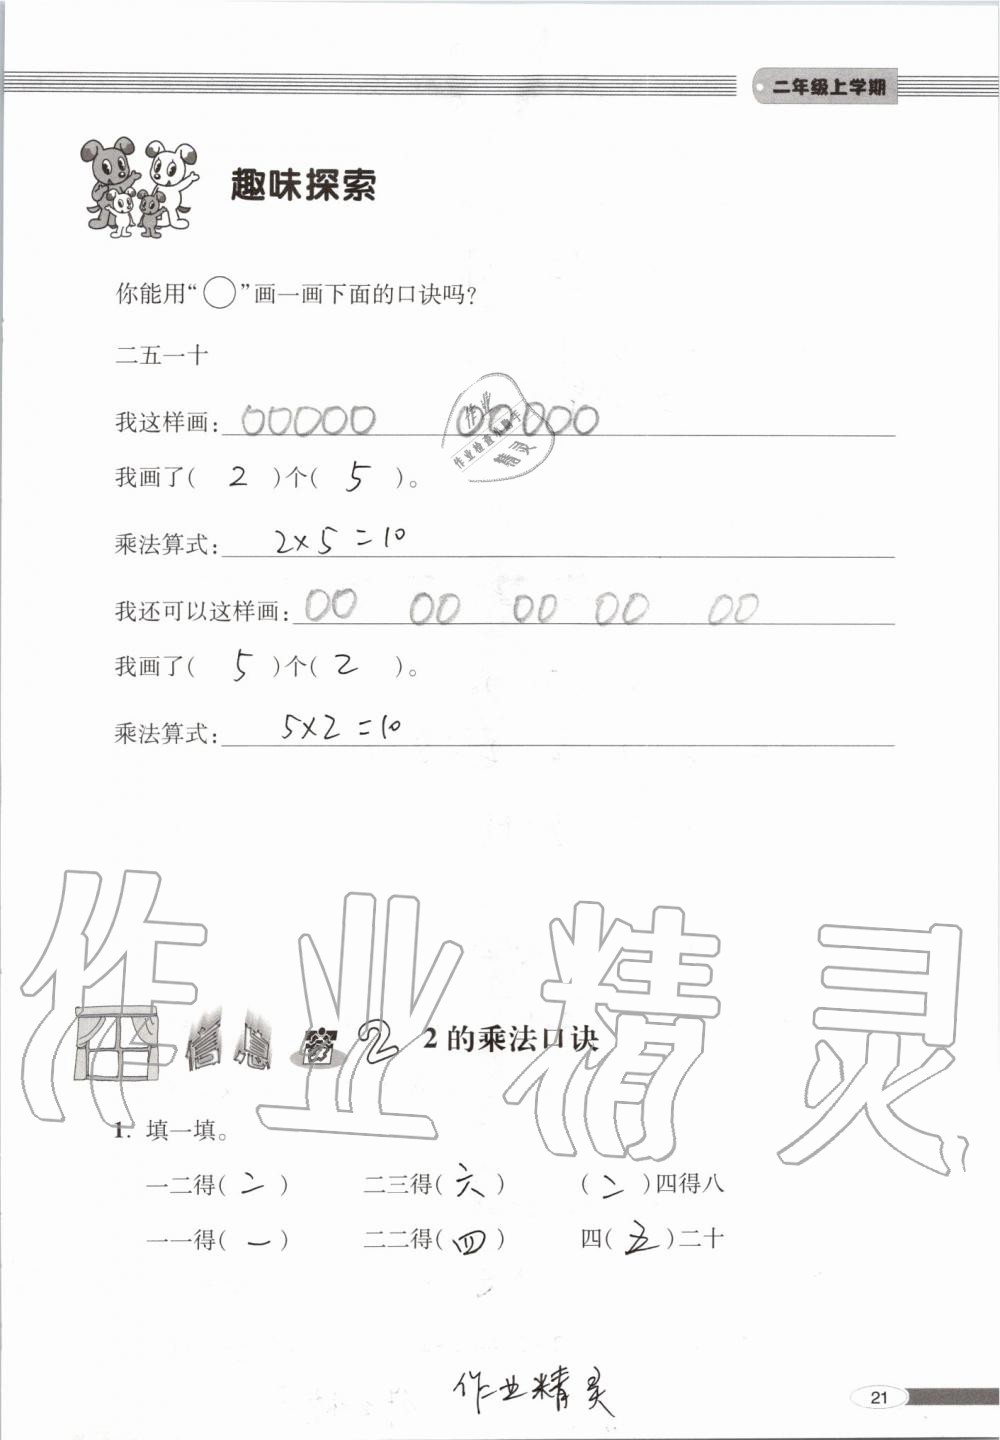 二年级上学期
趣味探索
你能用“○”画一画下面的口诀吗?
二五一十
我这样画: 00000 00000
作业
作业检查小助手
精灵
我画了( 2 )个( 5 )。
乘法算式: 2×5=10
我还可以这样画: 00 00 00 00 00
我画了( 5 )个( 2 )。
乘法算式: 5×2=10
作业精灵
信息窗 2 2的乘法口诀
1. 填一填。
一二得( 二 ) 二三得( 六 ) ( 二 )四得八
一一得( 一 ) 二二得( 四 ) 四( 五 )二十
作业精灵
21